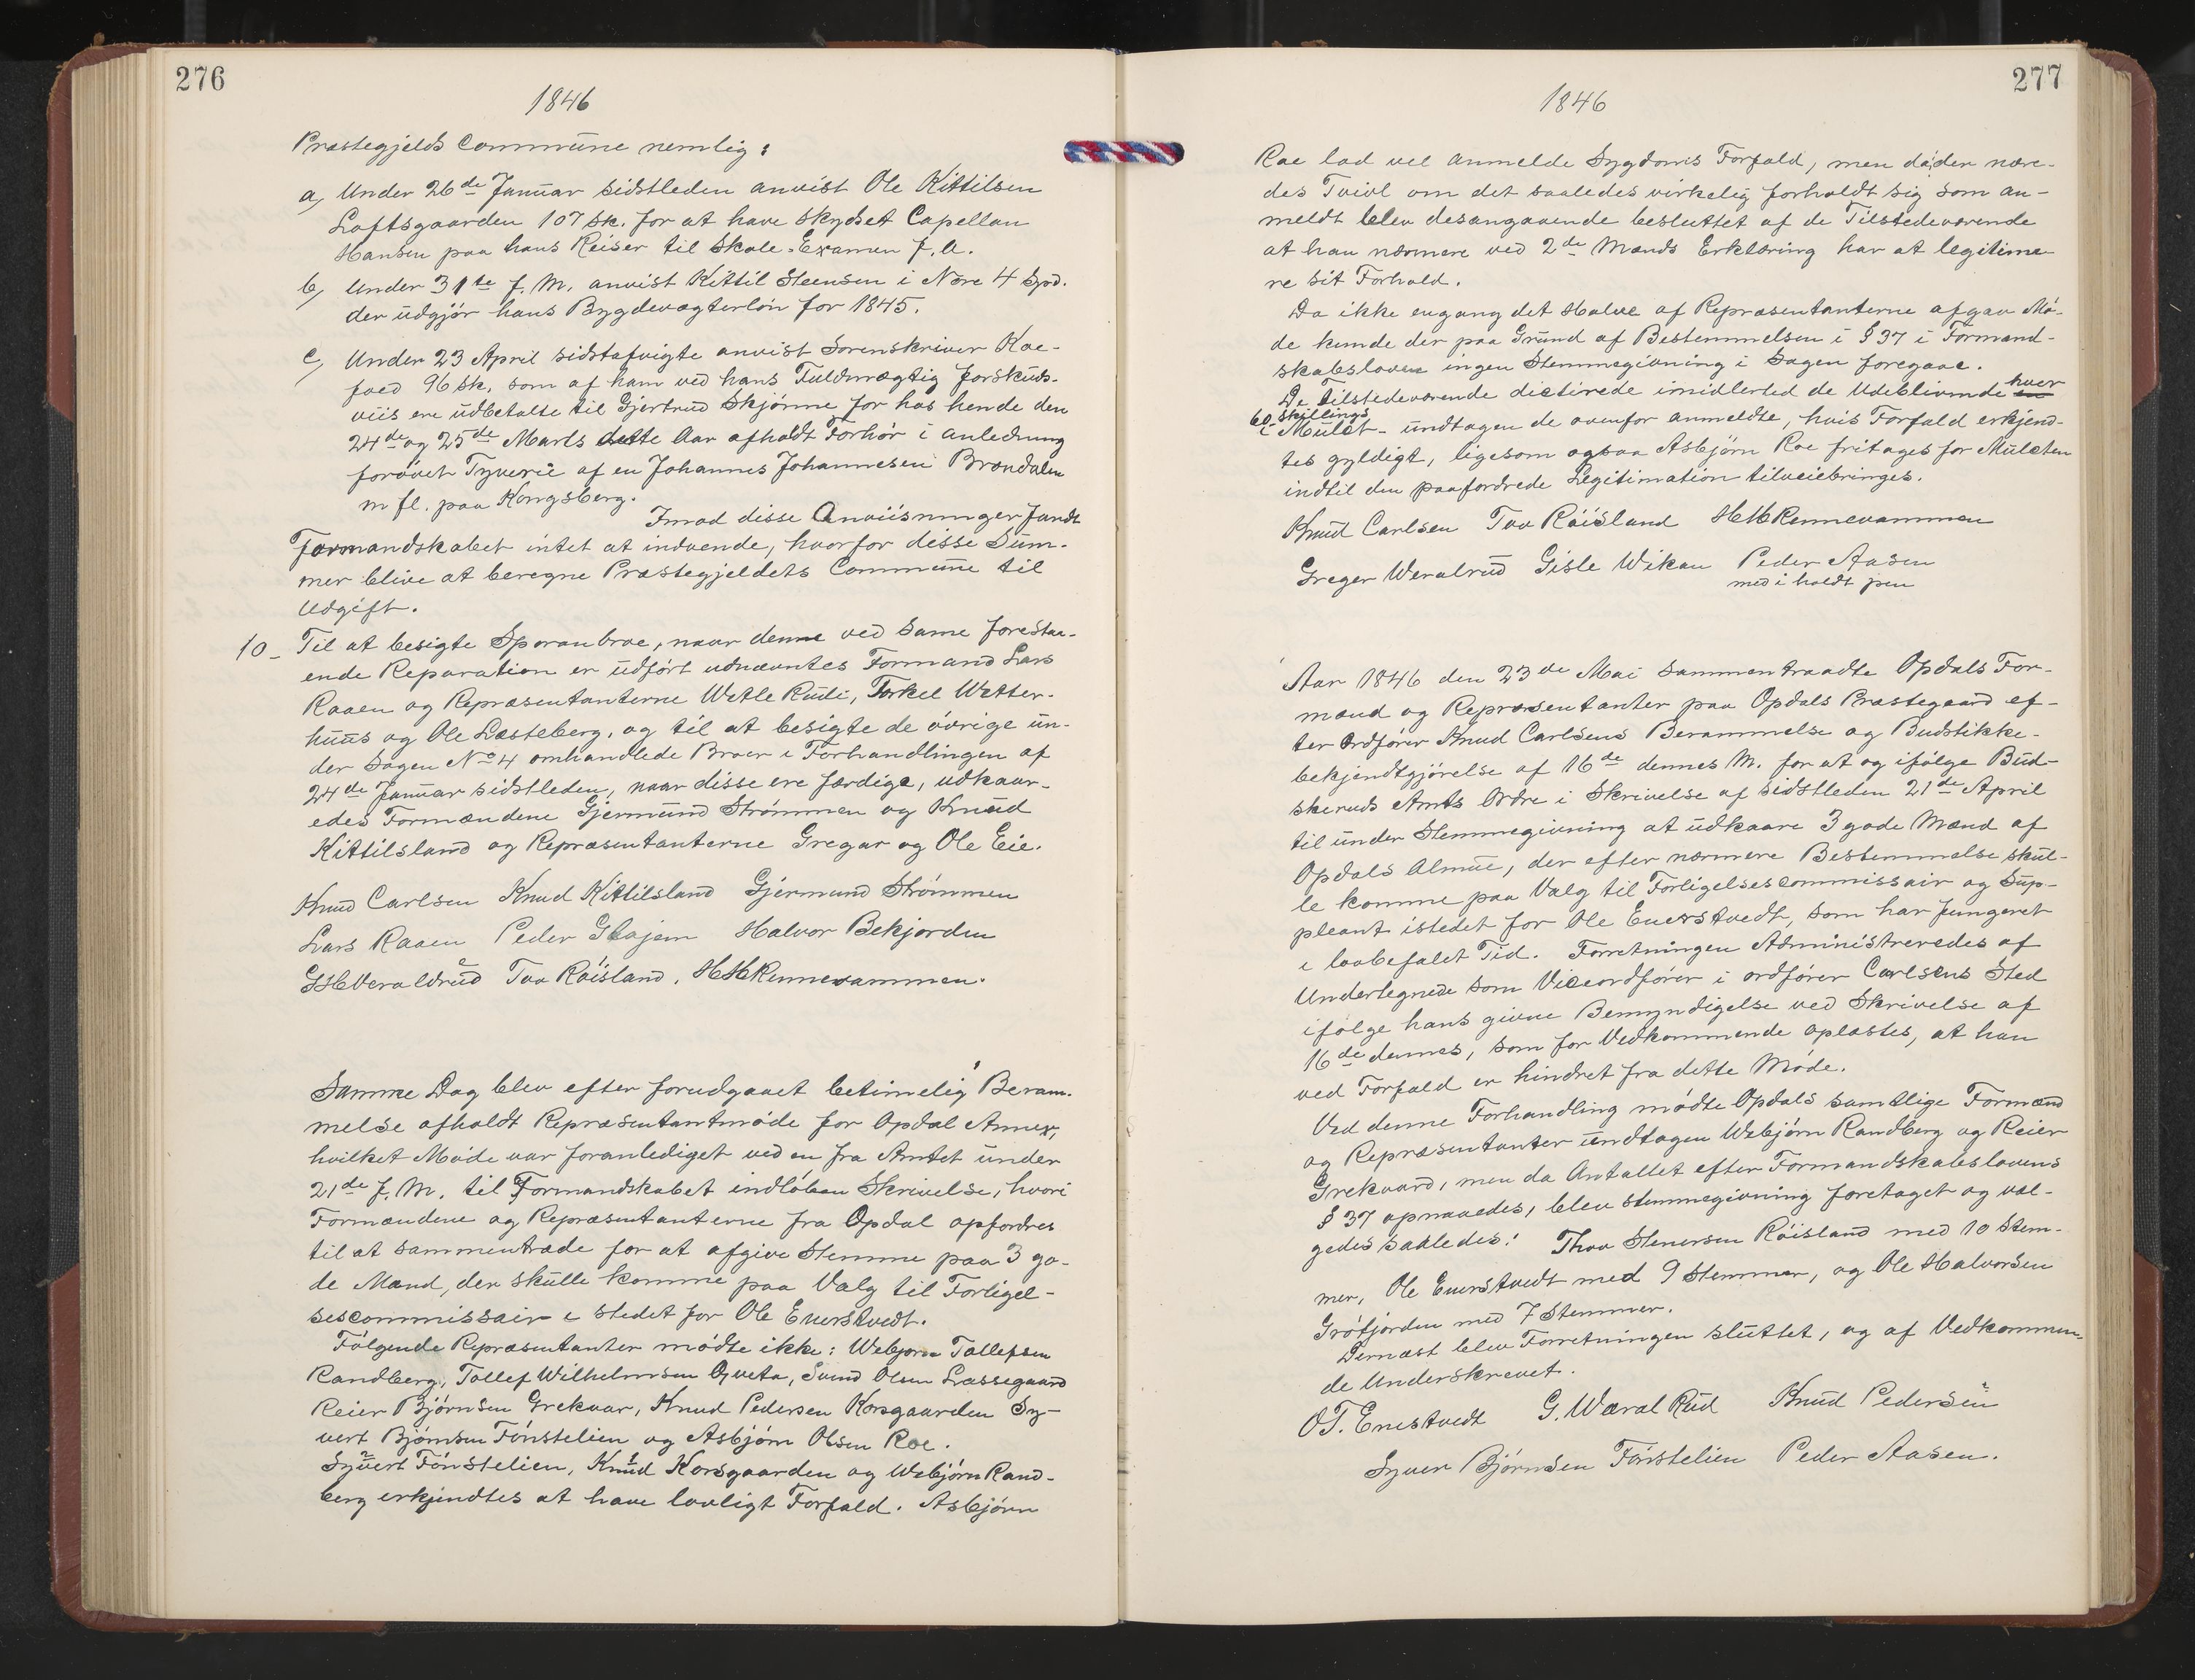 276
1846
Præstegjelds Commune nemlig:
a, Under 26de Januar sidstleden anvist Ole Kittilsen
Loftsgaarden 107 sk. for at have skydset Capellan
Hansen paa hans Reiser til Skole-Examen f. A.
b, Under 31te f. M. anvist Kittil Steensen i Nore 4 Spd.
der udgjør hans Bygdevægterløn for 1845.
c, Under 23 April sidstafvigte anvist Sorenskriver Koe-
foed 96 sk. som af ham ved hans Fuldmægtig forskuds-
viis ere udbetalte til Gjertrud Skjønne for hos hende den
24de og 25de Marts dette Aar afholdt Forhør i anledning
forøvet Tyverie af en Johannes Johannesen Brændalen
m fl. paa Kongsberg.
Imod disse Anviisninger fandt
Formandskabet intet at indvende, hvorfor disse Sum-
mer blive at beregne Præstegjeldets Commune til
Udgift.
10 - Til at besigte Sporanbroe, naar denne ved same forestaa-
ende Reparation er udført udnævntes Formand Lars
Raaen og Repræsentanterne Wetle Rudi, Torkel Wetter-
huus og Ole Læsteberg, og til at besigte de øvrige un-
der Sagen No 4 omhandlede Broer i Forhandlingen af
24de Januar sidstleden, naar disse ere færdige, udkaar-
edes Formændene Gjermund Strømmen og Knud
Kittilsland og Repræsentanterne Gregar og Ole Eie.
Knud Carlsen Knud Kittilsland Gjermund Strømmen
Lars Raaen Peder Glajem Halvor Bekjorden
GHWeraldrud Tov Røisland. HHRennevammen.
Samme Dag blev efter forudgaaet betimelig Beram-
melse afholdt Repræsentantmøde for Opdal Annex,
hvilket Møde var foranlediget ved en fra Amtet under
21de f. M. til Formandskabet indløben Skrivelse, hvori
Formændene og Repræsentanterne fra Opdal opfordres
til at sammentræde for at afgive Stemme paa 3 go-
de Mænd, der skulle komme paa Valg til Forligel-
sescommissair i stedet for Ole Enerstvedt.
Følgende Repræsentanter mødte ikke: Webjørn Tollefsen
Randberg, Tollef Wilhelmsen Qveta, Svend Olsen Læssegaard
Reier Bjørnsen Grekvar, Knud Pedersen Korsgaarden Sy-
vert Bjørnsen Fønstelien og Asbjørn Olsen Roe.
Syvert Fønstelien, Knud Korsgaarden og Webjørn Rand-
berg erkjendtes at have lovligt Forfald. Asbjørn
277
1846
Roe lod vel anmelde Sygdoms Forfald, men da der nære-
des Tvivl om det saaledes virkelig forholdt sig som an-
meldt blev desangaaende besluttet af de Tilstedeværende
at han nærmere ved 2de Mænds Erklæring har at legitime-
re sit Forhold.
Da ikke engang det Halve af Repræsentanterne afgav Mø-
de kunde der paa Grund af Bestemmelsen i § 37 i Formand-
skabsloven ingen Stemmegivning i Sagen foregaae.
De Tilstedeværende dictirede imidlertid de Udeblivende hver
60 skillings
i Mulct - undtagen de ovenfor anmeldte, hvis Forfald erkjend-
tes gyldigt, ligesom ogsaa Asbjørn Roe fritages for Mulcten
indtil den paafordrede Legitimation tilveiebringes.
Knud Carlsen Tov Røisland HHRennevammen
Greger Weralrud Gisle Wikan Peder Aasen
med i holdt pen
Aar 1846 den 23de Mai sammentraadte Opdals For-
mænd og Repræsentanter paa Opdals Præstegaard ef-
ter Ordfører Knud Carlsens Berammelse og Budstikke-
bekjendtgjørelse af 16de dennes M. for at og ifølge Bud-
skeruds Amts Ordre i Skrivelse af sidstleden 21de April
til under Stemmegivning at udkaare 3 gode Mænd af
Opdals Almue, der efter nærmere Bestemmelse skul-
le komme paa Valg til Forligelsescommissair og Sup-
pleant istedet for Ole Enerstvedt, som har fungeret
i lovbefalet Tid. Forretningen Administreredes af
Undertegnede som Viceordfører i ordfører Carlsens Sted
ifølge hans givne Bemyndigelse ved Skrivelse af
16de dennes, som for Vedkommende oplæstes, at han
ved Forfald er hindret fra dette Møde.
Ved denne Forhandling mødte Opdals samtlige Formænd
og Repræsentanter undtagen Webjørn Randberg og Reier
Grekvard, men da Antallet efter Formandskabslovens
§ 37 opnaaedes, blev stemmegivning foretaget og val-
gedes saaledes: Thov Stenersen Røisland med 10 Stem-
mer, Ole Enerstvedt med 9 Stemmer, og Ole Halvorsen
Grøtjorden med 7 Stemmer.
Dernæst blev Forretningen sluttet, og af Vedkommen-
de Underskrevet.
OT. Enerstvedt G. Wæral Rud Knud Pedersen
Syver Bjørnsen Fønstelien Peder Aasen.